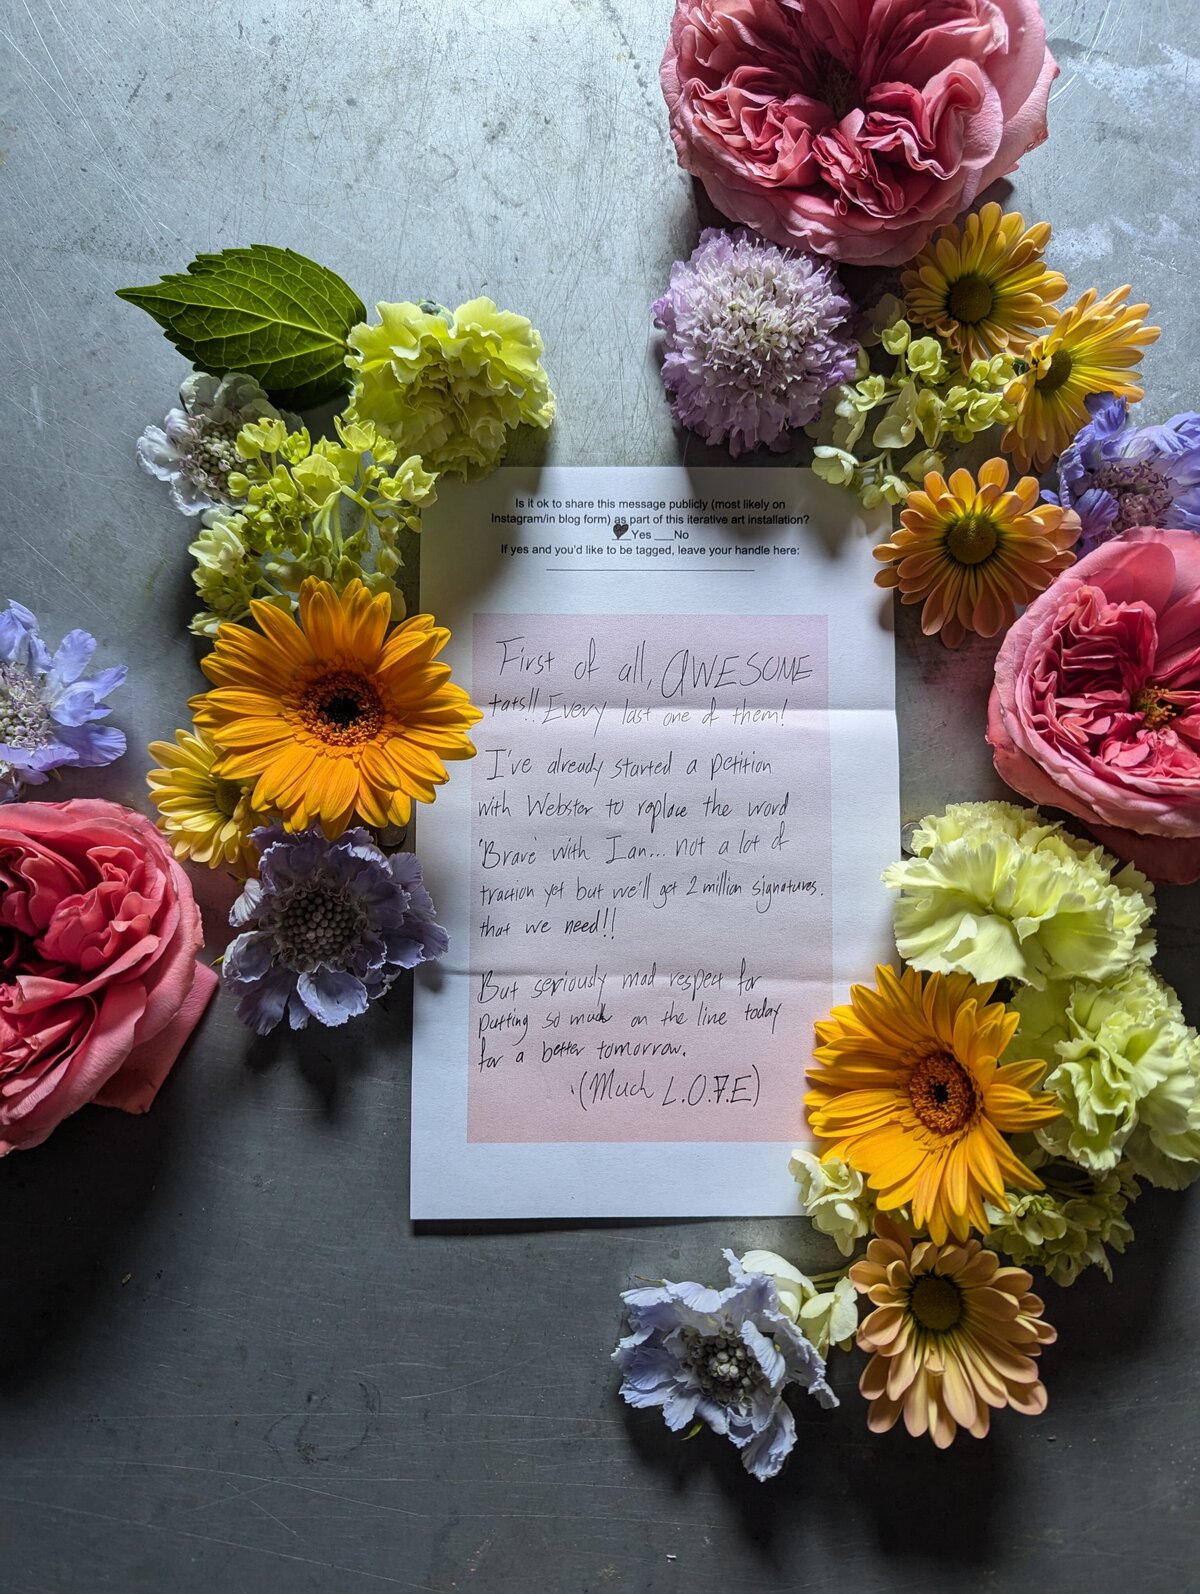 Is it ok to share this message publicly (most likely on
Instagram/in blog form) as part of this iterative art installation?
__Yes ___No
If yes and you'd like to be tagged, leave your handle here:
First of all, AWESOME
tats!! Every last one of them!
I've already started a petition
with Webster to replace the word
'Brave' with Ian... not a lot of
traction yet but we'll get 2 million signatures.
that we need!!
But seriously mad respect for
putting so much on the line today
for a better tomorrow.
(Much L.O.V.E)